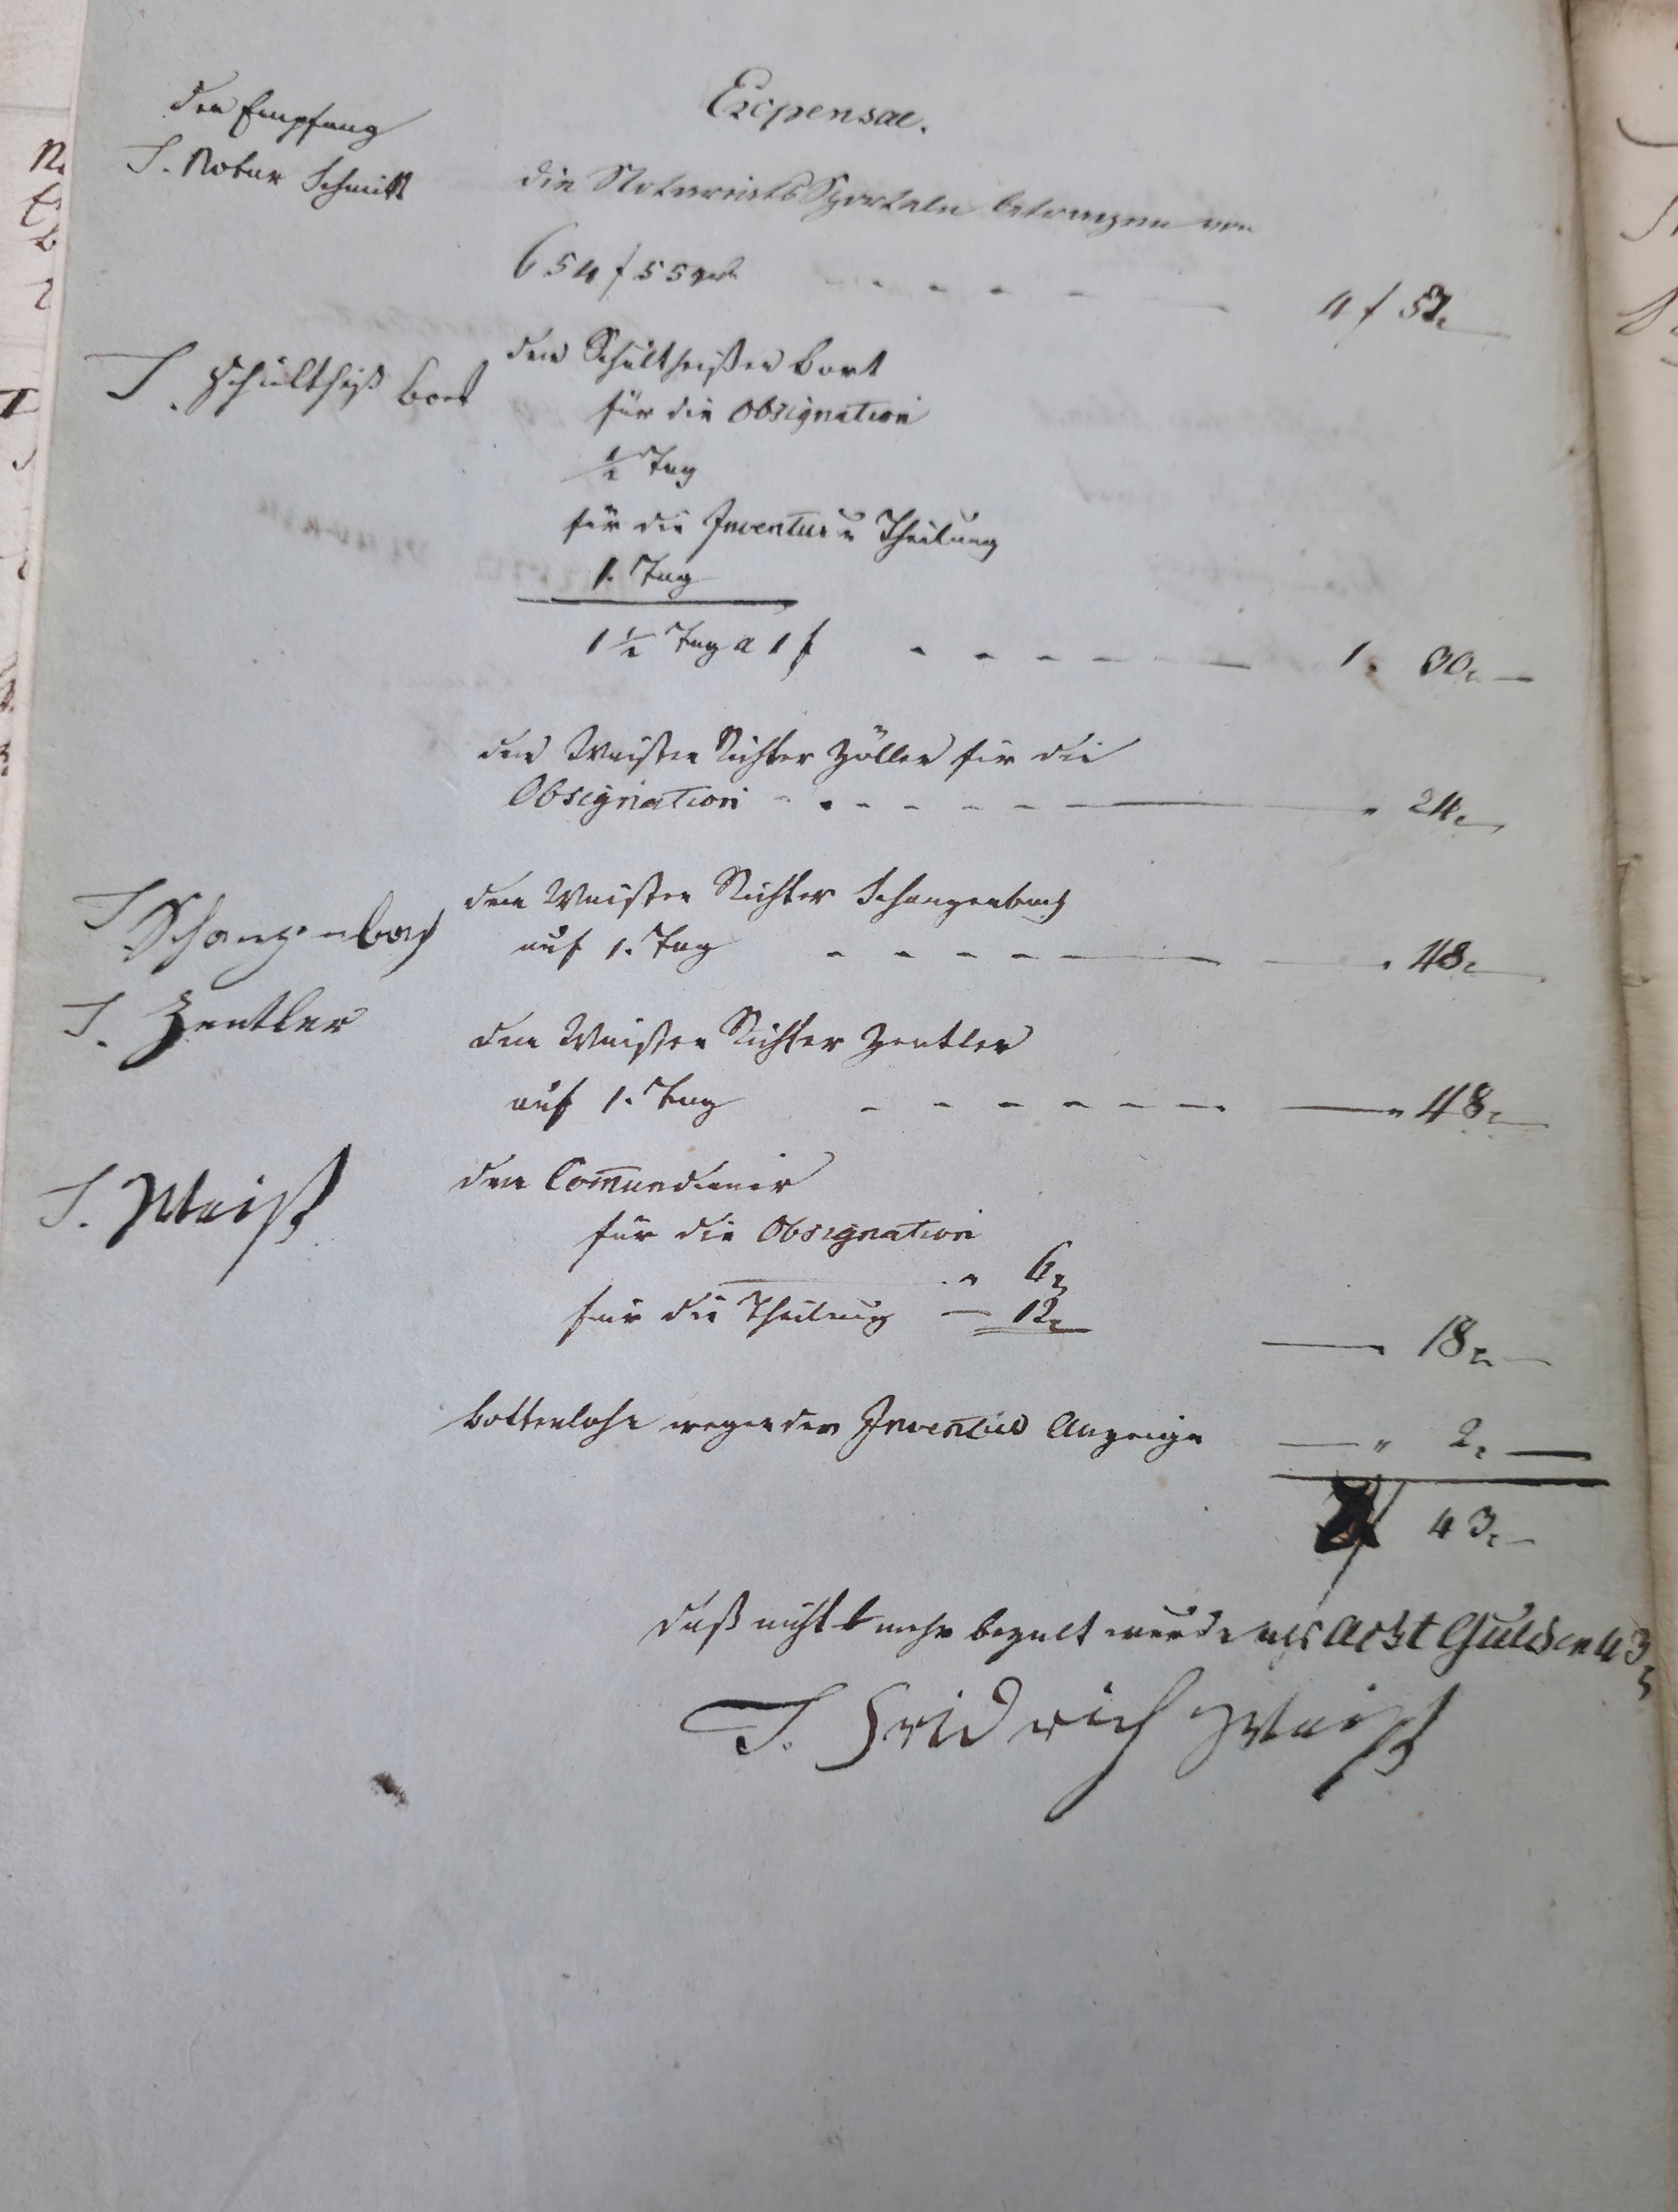 Expensae.
den Empfang
T. Notar Schmidt
die Notariats Sporteln betragen von
654 f 55 xr
4 f 53.
T. Schultheiß Bort
dem Schultheißen Bort
für die Obsignation
1/2 Tag
für die Inventur u Theilung
1. Tag
1 1/2 Tag a 1 f 1. 30.
dem Waisen Richter Zöller für die
Obsignation 24.
T Schanzenbach
dem Waisen Richter Schanzenbach
auf 1. Tag 48.
T. Zentler
dem Waisen Richter Zentler
auf 1. Tag 48.
T. Weiß
dem Commundiener
für die Obsignation
6
für die Theilung 12.
18
Bottenlohn wegen der Inventur Anzeige 2.
43.
daß nicht mehr bezalt wurde als Acht Gulden 43
T. Fridrich Weiß